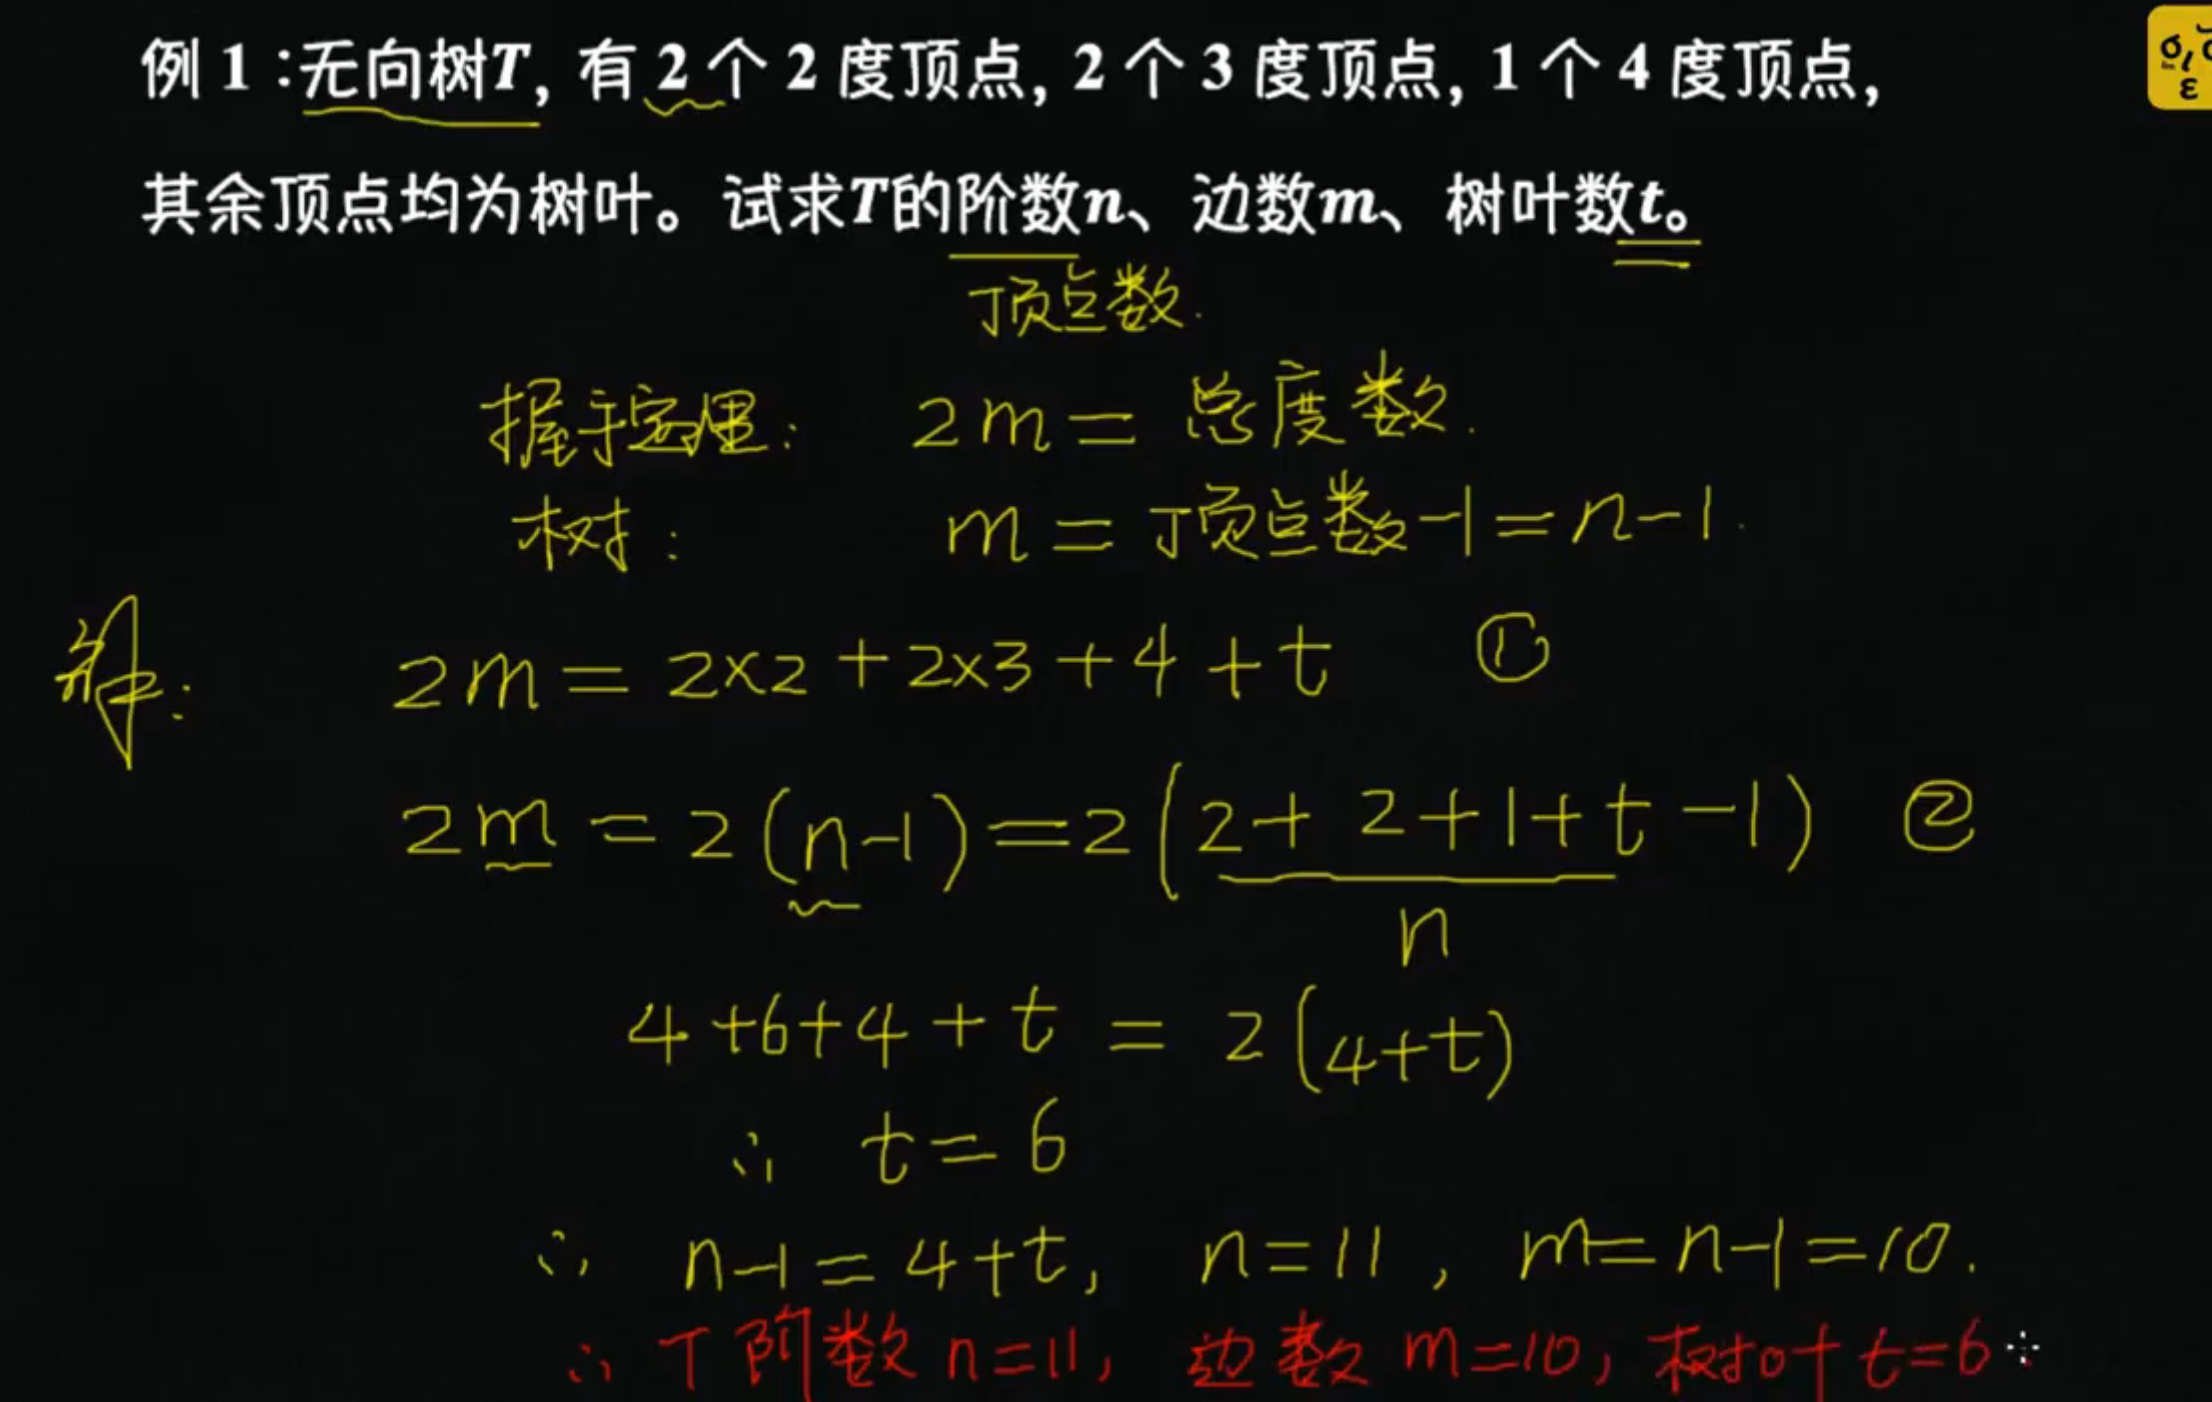 例1:无向树T, 有2个2度顶点, 2个3度顶点, 1个4度顶点,
其余顶点均为树叶。试求T的阶数n、边数m、树叶数t。
顶点数.
握手定理: 2m = 总度数.
树: m = 顶点数-1 = n-1.
解: 2m = 2×2 + 2×3 + 4 + t ①
2m = 2(n-1) = 2(2+2+1+t-1) ②
n
4+6+4+t = 2(4+t)
∴ t = 6
∴ n-1 = 4+t, n = 11, m = n-1 = 10.
∴ T 阶数 n=11, 边数 m=10, 树叶 t=6